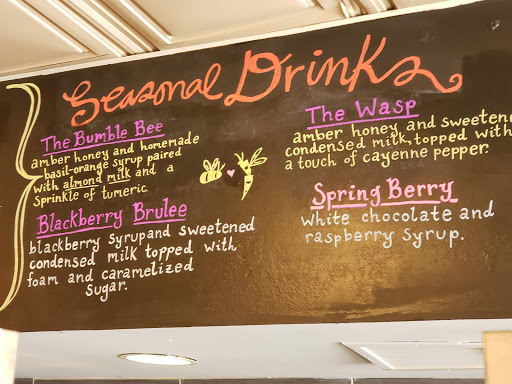 Seasonal Drinks
The Bumble Bee
amber honey and homemade
basil-orange syrup paired
with almond milk and a
Sprinkle of tumeric
Blackberry Brulee
blackberry syrup and sweetened
condensed milk topped with
foam and caramelized
Sugar.
The Wasp
amber honey and sweetened
condensed milk, topped with
a touch of cayenne pepper.
Spring Berry
white chocolate and
raspberry syrup.